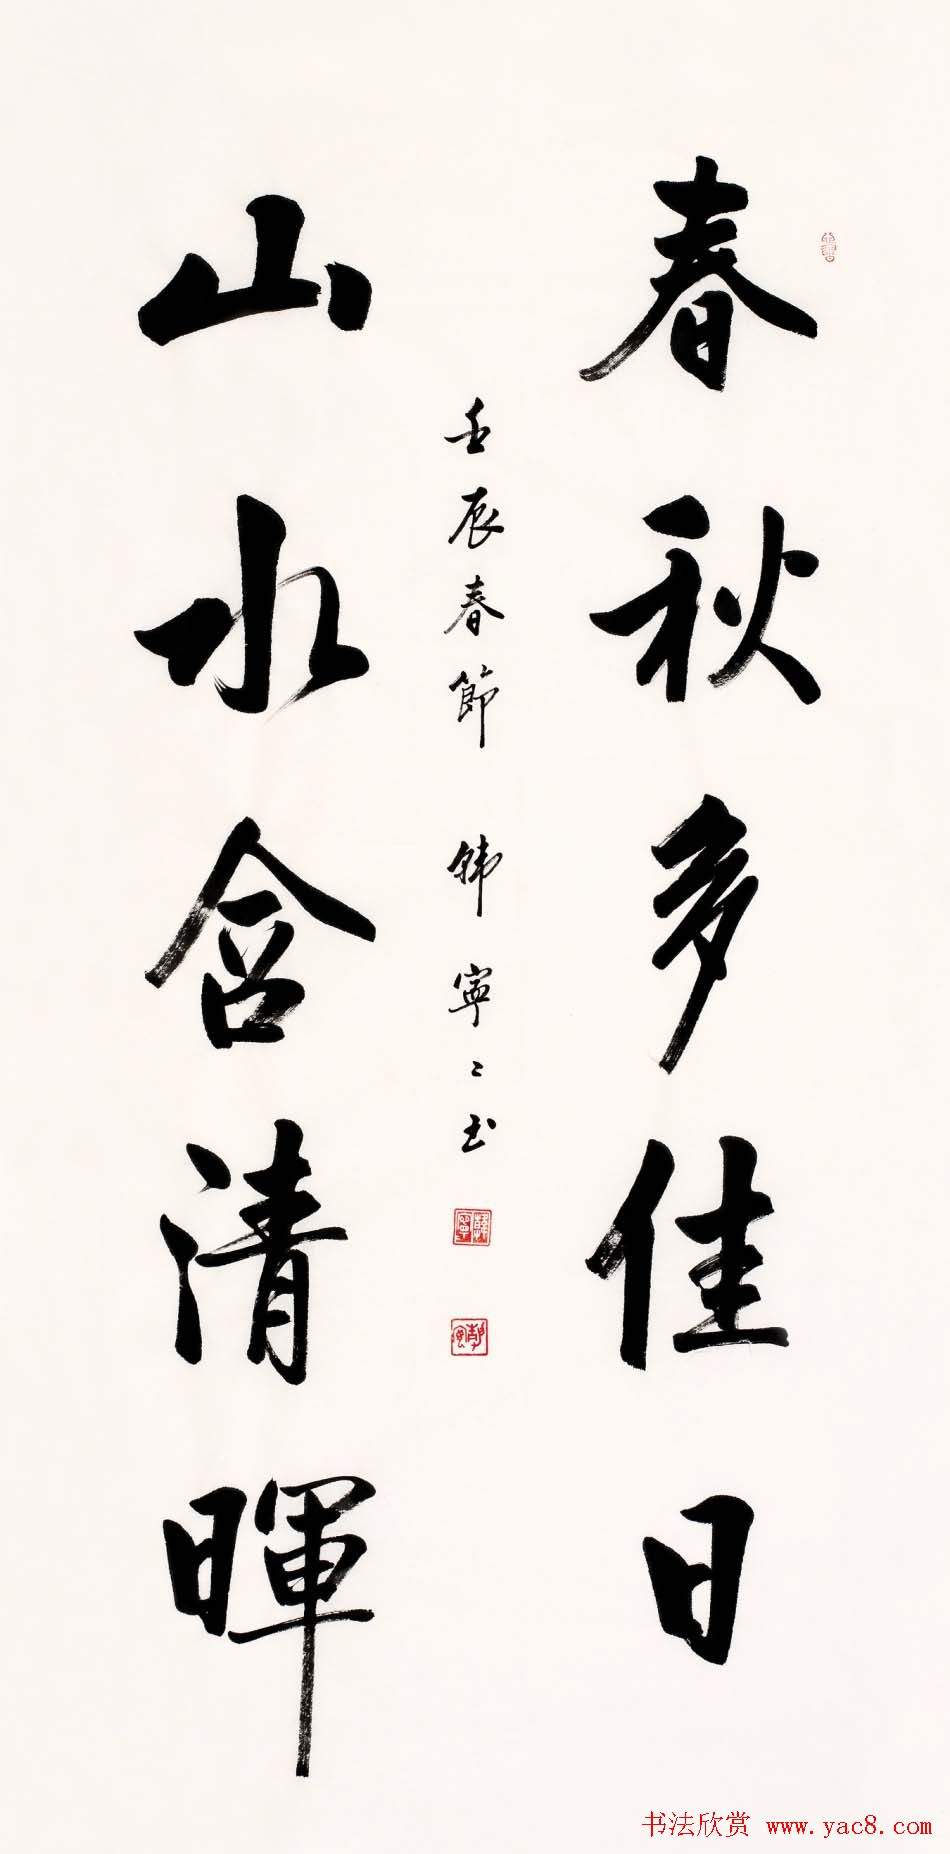 春秋多佳日
壬辰春節 韓寧寧书
山水含清暉
韓寧
书法欣赏 www.yac8.com